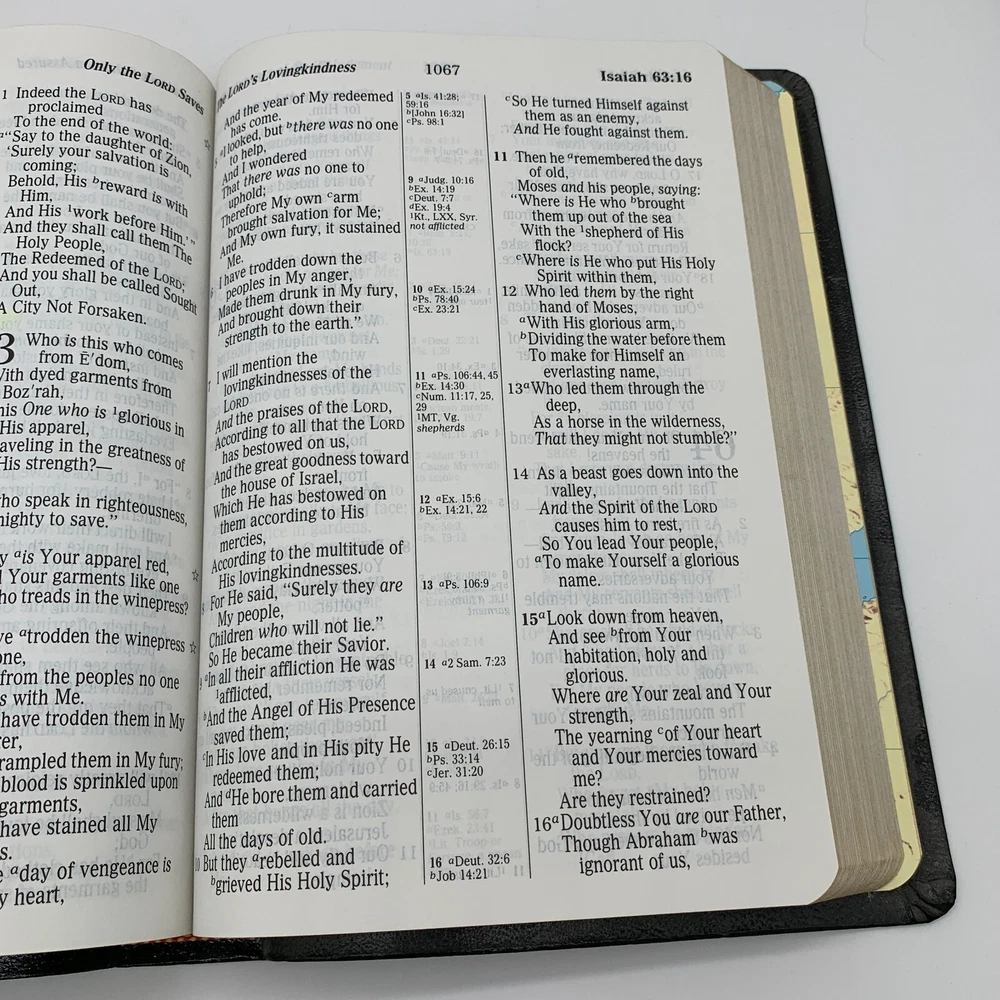 Only the LORD Saves
1 Indeed the LORD has
proclaimed
To the end of the world:
a“Say to the daughter of Zion,
‘Surely your salvation is
coming;
Behold, His breward is with
Him,
And His 1work before Him.’ ”
And they shall call them The
Holy People,
The Redeemed of the LORD;
And you shall be called Sought
Out,
A City Not Forsaken.
3 Who is this who comes
from Ē′dom,
With dyed garments from
Boz′rah,
his One who is 1glorious in
His apparel,
aveling in the greatness of
His strength?—
who speak in righteousness,
mighty to save.”
y ais Your apparel red,
Your garments like one
who treads in the winepress?
ve atrodden the winepress
one,
from the peoples no one
s with Me.
have trodden them in My
er,
rampled them in My fury;
blood is sprinkled upon
garments,
have stained all My
s.
e aday of vengeance is
y heart,
The LORD’s Lovingkindness 1067 Isaiah 63:16
And the year of My redeemed
has come.
5 aI looked, but bthere was no one
to help,
And I wondered
That there was no one to
uphold;
Therefore My own carm
brought salvation for Me;
And My own fury, it sustained
Me.
6 I have trodden down the
peoples in My anger,
Made them drunk in My fury,
And brought down their
strength to the earth.”
7 I will mention the
lovingkindnesses of the
LORD
And the praises of the LORD,
According to all that the LORD
has bestowed on us,
And the great goodness toward
the house of Israel,
Which He has bestowed on
them according to His
mercies,
According to the multitude of
His lovingkindnesses.
8 For He said, “Surely they are
My people,
Children who will not lie.”
So He became their Savior.
9 aIn all their affliction He was
1afflicted,
bAnd the Angel of His Presence
saved them;
cIn His love and in His pity He
redeemed them;
And dHe bore them and carried
them
All the days of old.
10 But they arebelled and
bgrieved His Holy Spirit;
5 aIs. 41:28;
59:16
b[John 16:32]
cPs. 98:1
9 aJudg. 10:16
bEx. 14:19
cDeut. 7:7
dEx. 19:4
1Kt., LXX, Syr.
not afflicted
10 aEx. 15:24
bPs. 78:40
cEx. 23:21
11 aPs. 106:44, 45
bEx. 14:30
cNum. 11:17, 25,
29
1MT, Vg.
shepherds
12 aEx. 15:6
bEx. 14:21, 22
13 aPs. 106:9
14 a2 Sam. 7:23
15 aDeut. 26:15
bPs. 33:14
cJer. 31:20
16 aDeut. 32:6
bJob 14:21
cSo He turned Himself against
them as an enemy,
And He fought against them.
11 Then he aremembered the days
of old,
Moses and his people, saying:
“Where is He who bbrought
them up out of the sea
With the 1shepherd of His
flock?
cWhere is He who put His Holy
Spirit within them,
12 Who led them by the right
hand of Moses,
aWith His glorious arm,
bDividing the water before them
To make for Himself an
everlasting name,
13aWho led them through the
deep,
As a horse in the wilderness,
That they might not stumble?”
14 As a beast goes down into the
valley,
And the Spirit of the LORD
causes him to rest,
So You lead Your people,
aTo make Yourself a glorious
name.
15aLook down from heaven,
And see bfrom Your
habitation, holy and
glorious.
Where are Your zeal and Your
strength,
The yearning cof Your heart
and Your mercies toward
me?
Are they restrained?
16aDoubtless You are our Father,
Though Abraham bwas
ignorant of us,